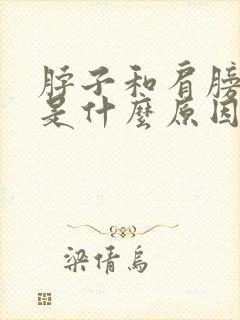 脖子和肩膀
是什麼原因
梁倩烏